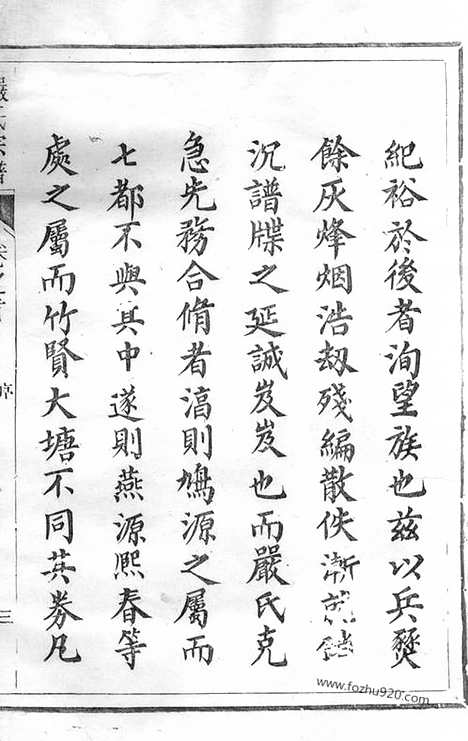 紀裕於後者洵望族也茲以兵燹
餘灰烽烟浩刼殘編散佚漸
況譜牒之延誠岌岌也而嚴氏克
急先務合脩者滈則鳩源之屬而
七都不與其中遂則燕源熙春等
處之屬而竹賢大塘不同其券凡
嚴氏宗譜
序
三
www.fozhu920.com